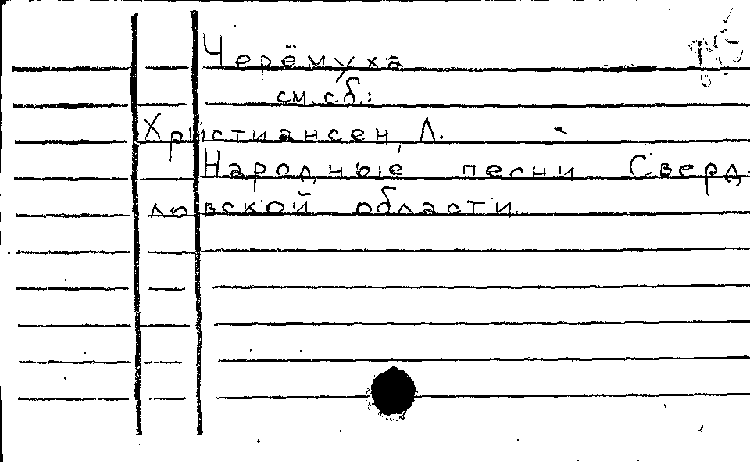 Черёмуха
см. сб.:
Христиансен, Л.
Народные песни Сверд
ловской области